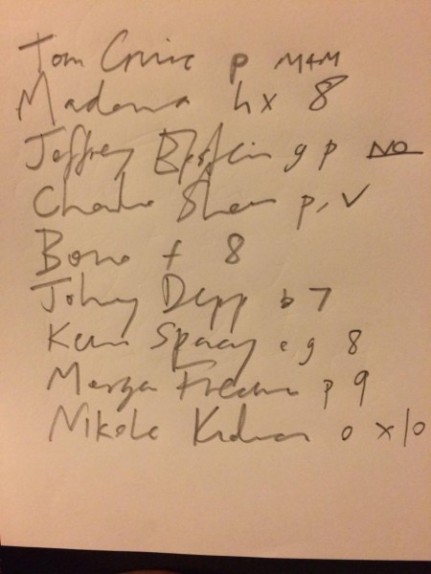 Tom Cruise p M+M
Madonna hx 8
Jeffrey Epstein g p NO
Charlie Sheen p, V
Bono f 8
Johny Depp b 7
Kevin Spacey e g 8
Morgan Freeman p 9
Nikole Kidman o x 10